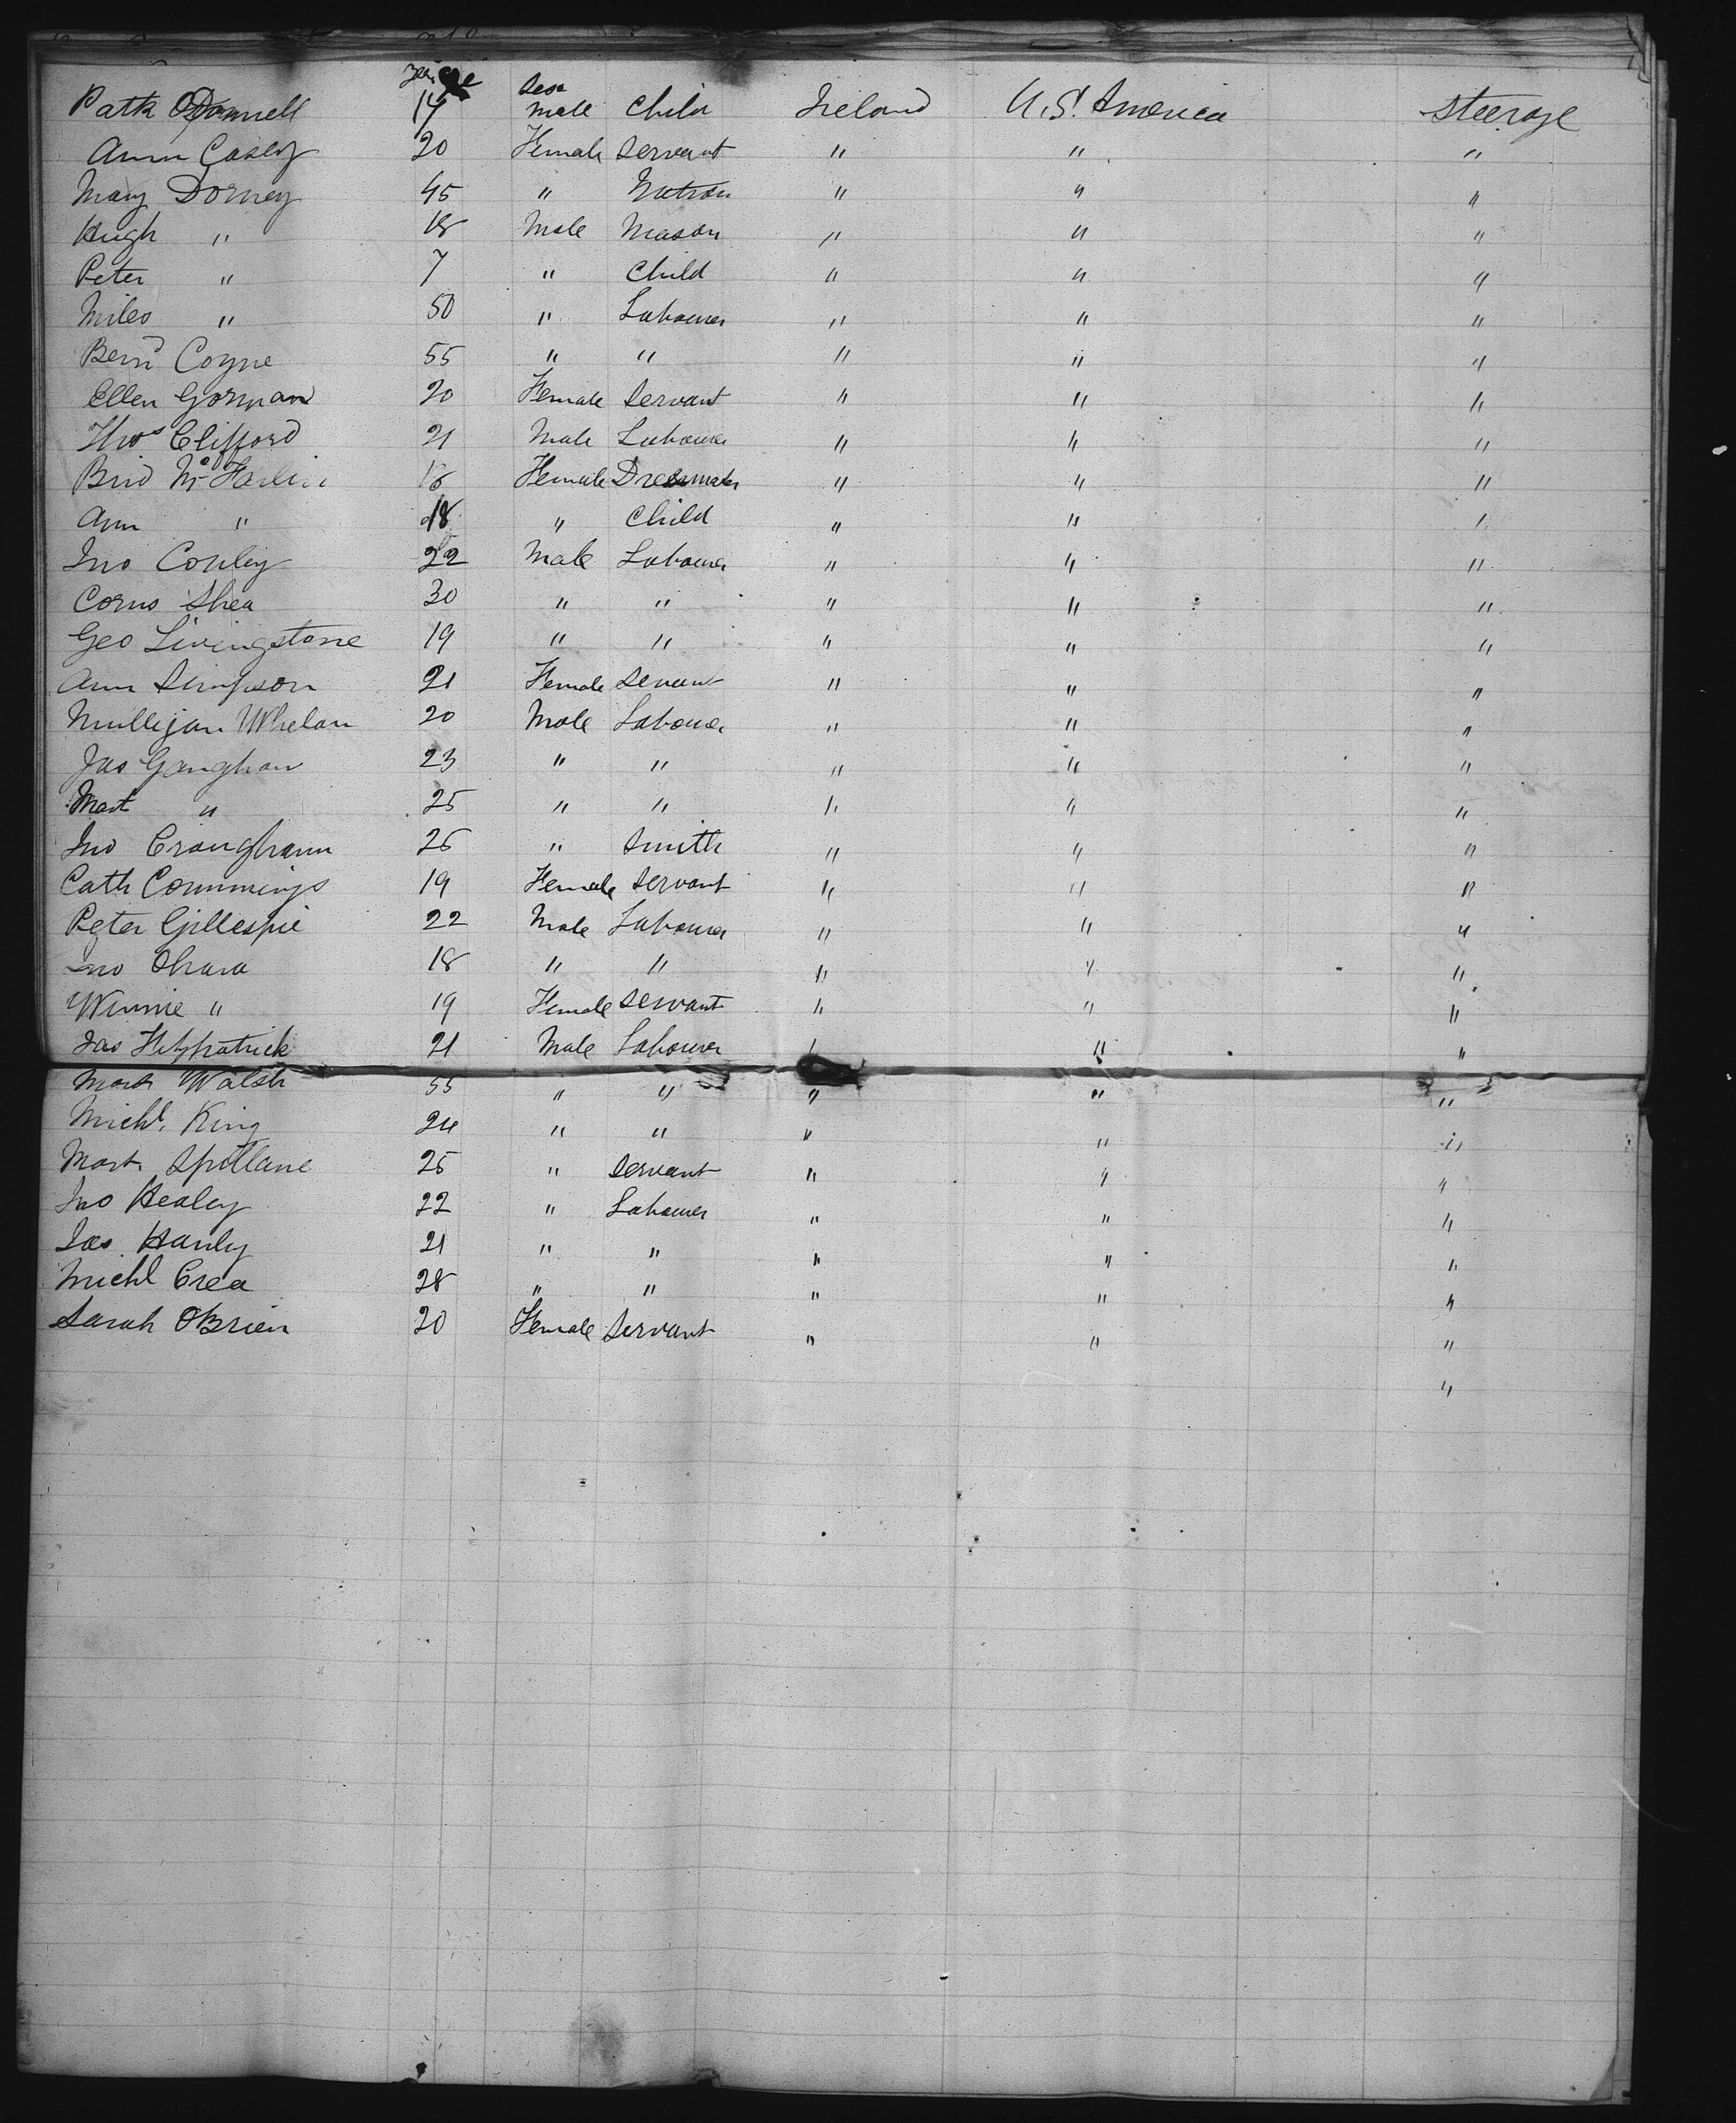 Age Sex
Patk O'Donnell 14 Male Child Ireland U.S. America Steerage
Ann Casey 20 Female Servant " " "
Mary Dorney 45 " Matron " " "
Hugh " 18 Male Mason " " "
Peter " 7 " Child " " "
Miles " 50 " Labourer " " "
Bernd Coyne 55 " " " " "
Ellen Gorman 20 Female Servant " " "
Thos Clifford 21 Male Labourer " " "
Brid McFarlin 18 Female Dressmaker " " "
Ann " " Child " " "
Jno Conley 22 Male Labourer " " "
Corns Shea 30 " " " " "
Geo Livingstone 19 " " " " "
Ann Simpson 21 Female Servant " " "
Mulligan Whelan 20 Male Labourer " " "
Jas Gaughan 23 " " " " "
Mart " 25 " " " " "
Jno Croughann 25 " Smith " " "
Cath Commmings 19 Female Servant " " "
Peter Gillespie 22 Male Labourer " " "
Jno Ohara 18 " " " " "
Winnie " 19 Female Servant " " "
Jas Fitzpatrick 21 Male Labourer " " "
Mark Walsh 55 " " " " "
Michl. King 24 " " " " "
Mart. Spillane 25 " Servant " " "
Jno Healey 22 " Labourer " " "
Jas. Hanly 21 " " " " "
Michl Crea 28 " " " " "
Sarah OBrien 20 Female Servant " " "
"